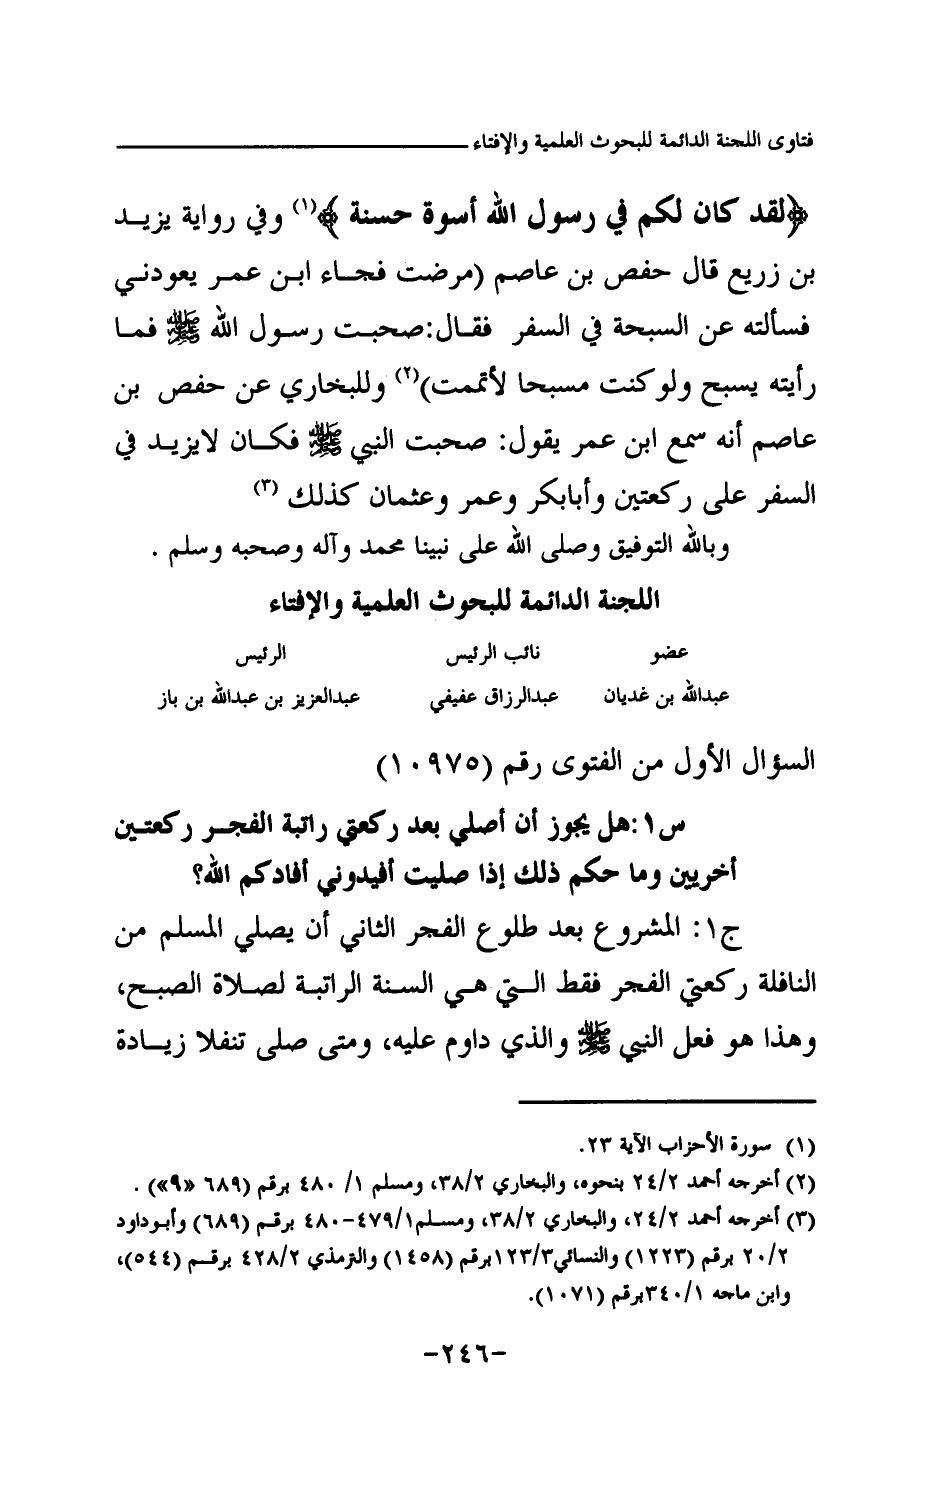 فتاوى اللجنة الدائمة للبحوث العلمية والإفتاء
﴿لقد كان لكم في رسول الله أسوة حسنة ﴾(١) وفي رواية يزيد
بن زريع قال حفص بن عاصم (مرضت فجاء ابن عمر يعودني
فسألته عن السبحة في السفر فقال:صحبت رسول الله ﷺ فما
رأيته يسبح ولو كنت مسبحا لأتممت)(٢) وللبخاري عن حفص بن
عاصم أنه سمع ابن عمر يقول: صحبت النبي ﷺ فكان لايزيد في
السفر على ركعتين وأبابكر وعمر وعثمان كذلك (٣)
وبالله التوفيق وصلى الله على نبينا محمد وآله وصحبه وسلم .
اللجنة الدائمة للبحوث العلمية والإفتاء
عضو نائب الرئيس الرئيس
عبدالله بن غديان عبدالرزاق عفيفي عبدالعزيز بن عبدالله بن باز
السؤال الأول من الفتوى رقم (١٠٩٧٥)
س١:هل يجوز أن أصلي بعد ركعتي راتبة الفجر ركعتين
أخريين وما حكم ذلك إذا صليت أفيدوني أفادكم الله؟
ج١: المشروع بعد طلوع الفجر الثاني أن يصلي المسلم من
النافلة ركعتي الفجر فقط التي هي السنة الراتبة لصلاة الصبح،
وهذا هو فعل النبي ﷺ والذي داوم عليه، ومتى صلى تنفلا زيادة
(١) سورة الأحزاب الآية ٢٣.
(٢) أخرجه أحمد ٢٤/٢ بنحوه، والبخاري ٣٨/٢، ومسلم ١/ ٤٨٠ برقم (٦٨٩ «٩») .
(٣) أخرجه أحمد ٢٤/٢، والبخاري ٣٨/٢، ومسلم١/٤٧٩-٤٨٠ برقم (٦٨٩) وأبوداود
٢٠/٢ برقم (١٢٢٣) والنسائي١٢٣/٣برقم (١٤٥٨) والترمذي ٤٢٨/٢ برقم (٥٤٤)،
وابن ماجه ٣٤٠/١برقم (١٠٧١).
-٢٤٦-